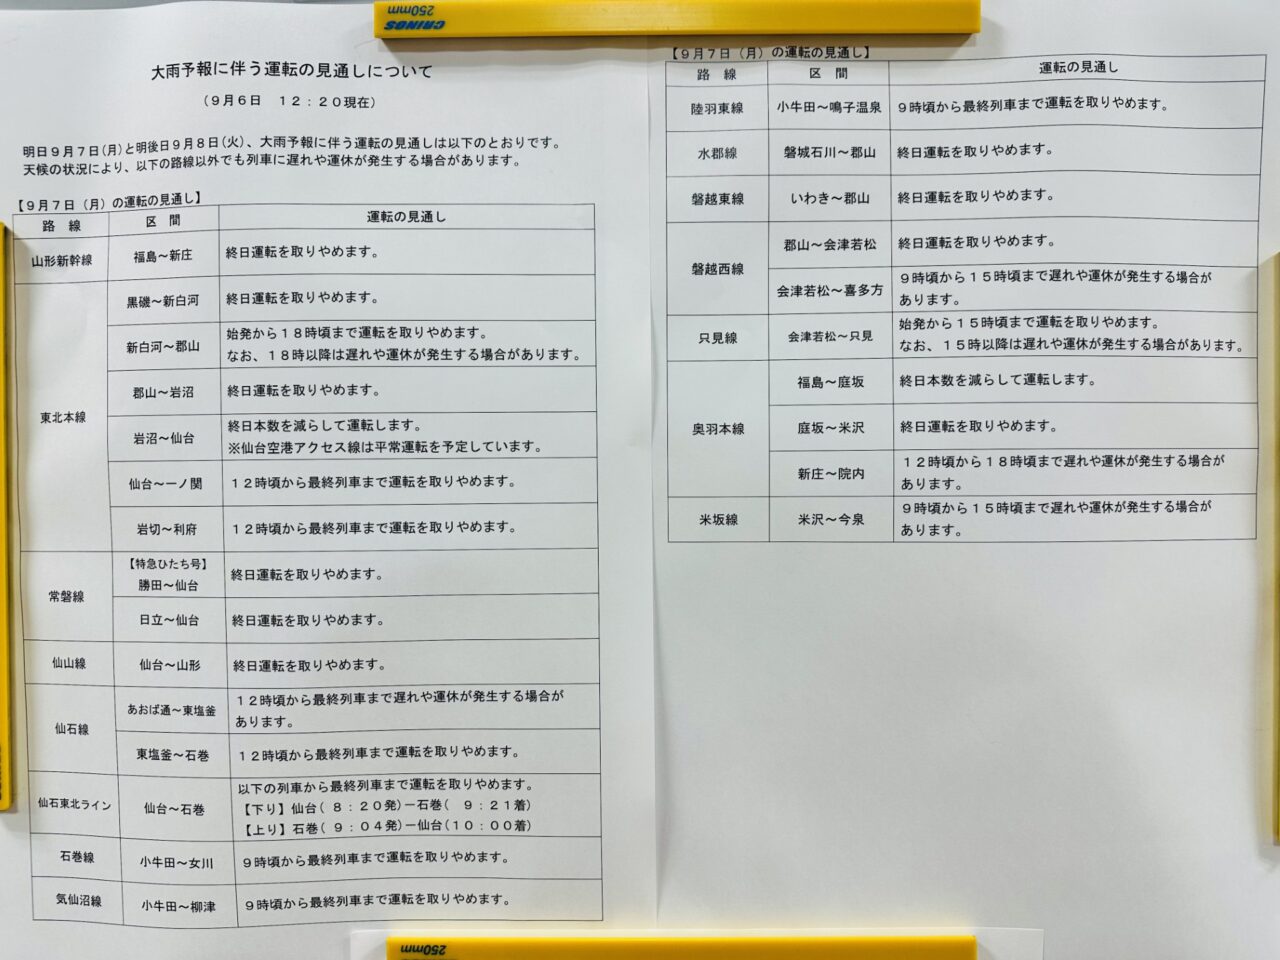 250mm
CRINOS
大雨予報に伴う運転の見通しについて
(9月6日 12:20現在)
明日9月7日(月)と明後日9月8日(火)、大雨予報に伴う運転の見通しは以下のとおりです。
天候の状況により、以下の路線以外でも列車に遅れや運休が発生する場合があります。
【9月7日(月)の運転の見通し】
路 線 区 間 運転の見通し
山形新幹線 福島～新庄 終日運転を取りやめます。
東北本線
黒磯～新白河 終日運転を取りやめます。
新白河～郡山 始発から18時頃まで運転を取りやめます。
なお、18時以降は遅れや運休が発生する場合があります。
郡山～岩沼 終日運転を取りやめます。
岩沼～仙台 終日本数を減らして運転します。
※仙台空港アクセス線は平常運転を予定しています。
仙台～一ノ関 12時頃から最終列車まで運転を取りやめます。
岩切～利府 12時頃から最終列車まで運転を取りやめます。
常磐線
【特急ひたち号】
勝田～仙台 終日運転を取りやめます。
日立～仙台 終日運転を取りやめます。
仙山線 仙台～山形 終日運転を取りやめます。
仙石線
あおば通～東塩釜 12時頃から最終列車まで遅れや運休が発生する場合が
あります。
東塩釜～石巻 12時頃から最終列車まで運転を取りやめます。
仙石東北ライン 仙台～石巻 以下の列車から最終列車まで運転を取りやめます。
【下り】仙台(8:20発)－石巻(9:21着)
【上り】石巻(9:04発)－仙台(10:00着)
石巻線 小牛田～女川 9時頃から最終列車まで運転を取りやめます。
気仙沼線 小牛田～柳津 9時頃から最終列車まで運転を取りやめます。
【9月7日(月)の運転の見通し】
路 線 区 間 運転の見通し
陸羽東線 小牛田～鳴子温泉 9時頃から最終列車まで運転を取りやめます。
水郡線 磐城石川～郡山 終日運転を取りやめます。
磐越東線 いわき～郡山 終日運転を取りやめます。
磐越西線
郡山～会津若松 終日運転を取りやめます。
会津若松～喜多方 9時頃から15時頃まで遅れや運休が発生する場合が
あります。
只見線 会津若松～只見 始発から15時頃まで運転を取りやめます。
なお、15時以降は遅れや運休が発生する場合があります。
奥羽本線
福島～庭坂 終日本数を減らして運転します。
庭坂～米沢 終日運転を取りやめます。
新庄～院内 12時頃から18時頃まで遅れや運休が発生する場合が
あります。
米坂線 米沢～今泉 9時頃から15時頃まで遅れや運休が発生する場合が
あります。
250mm